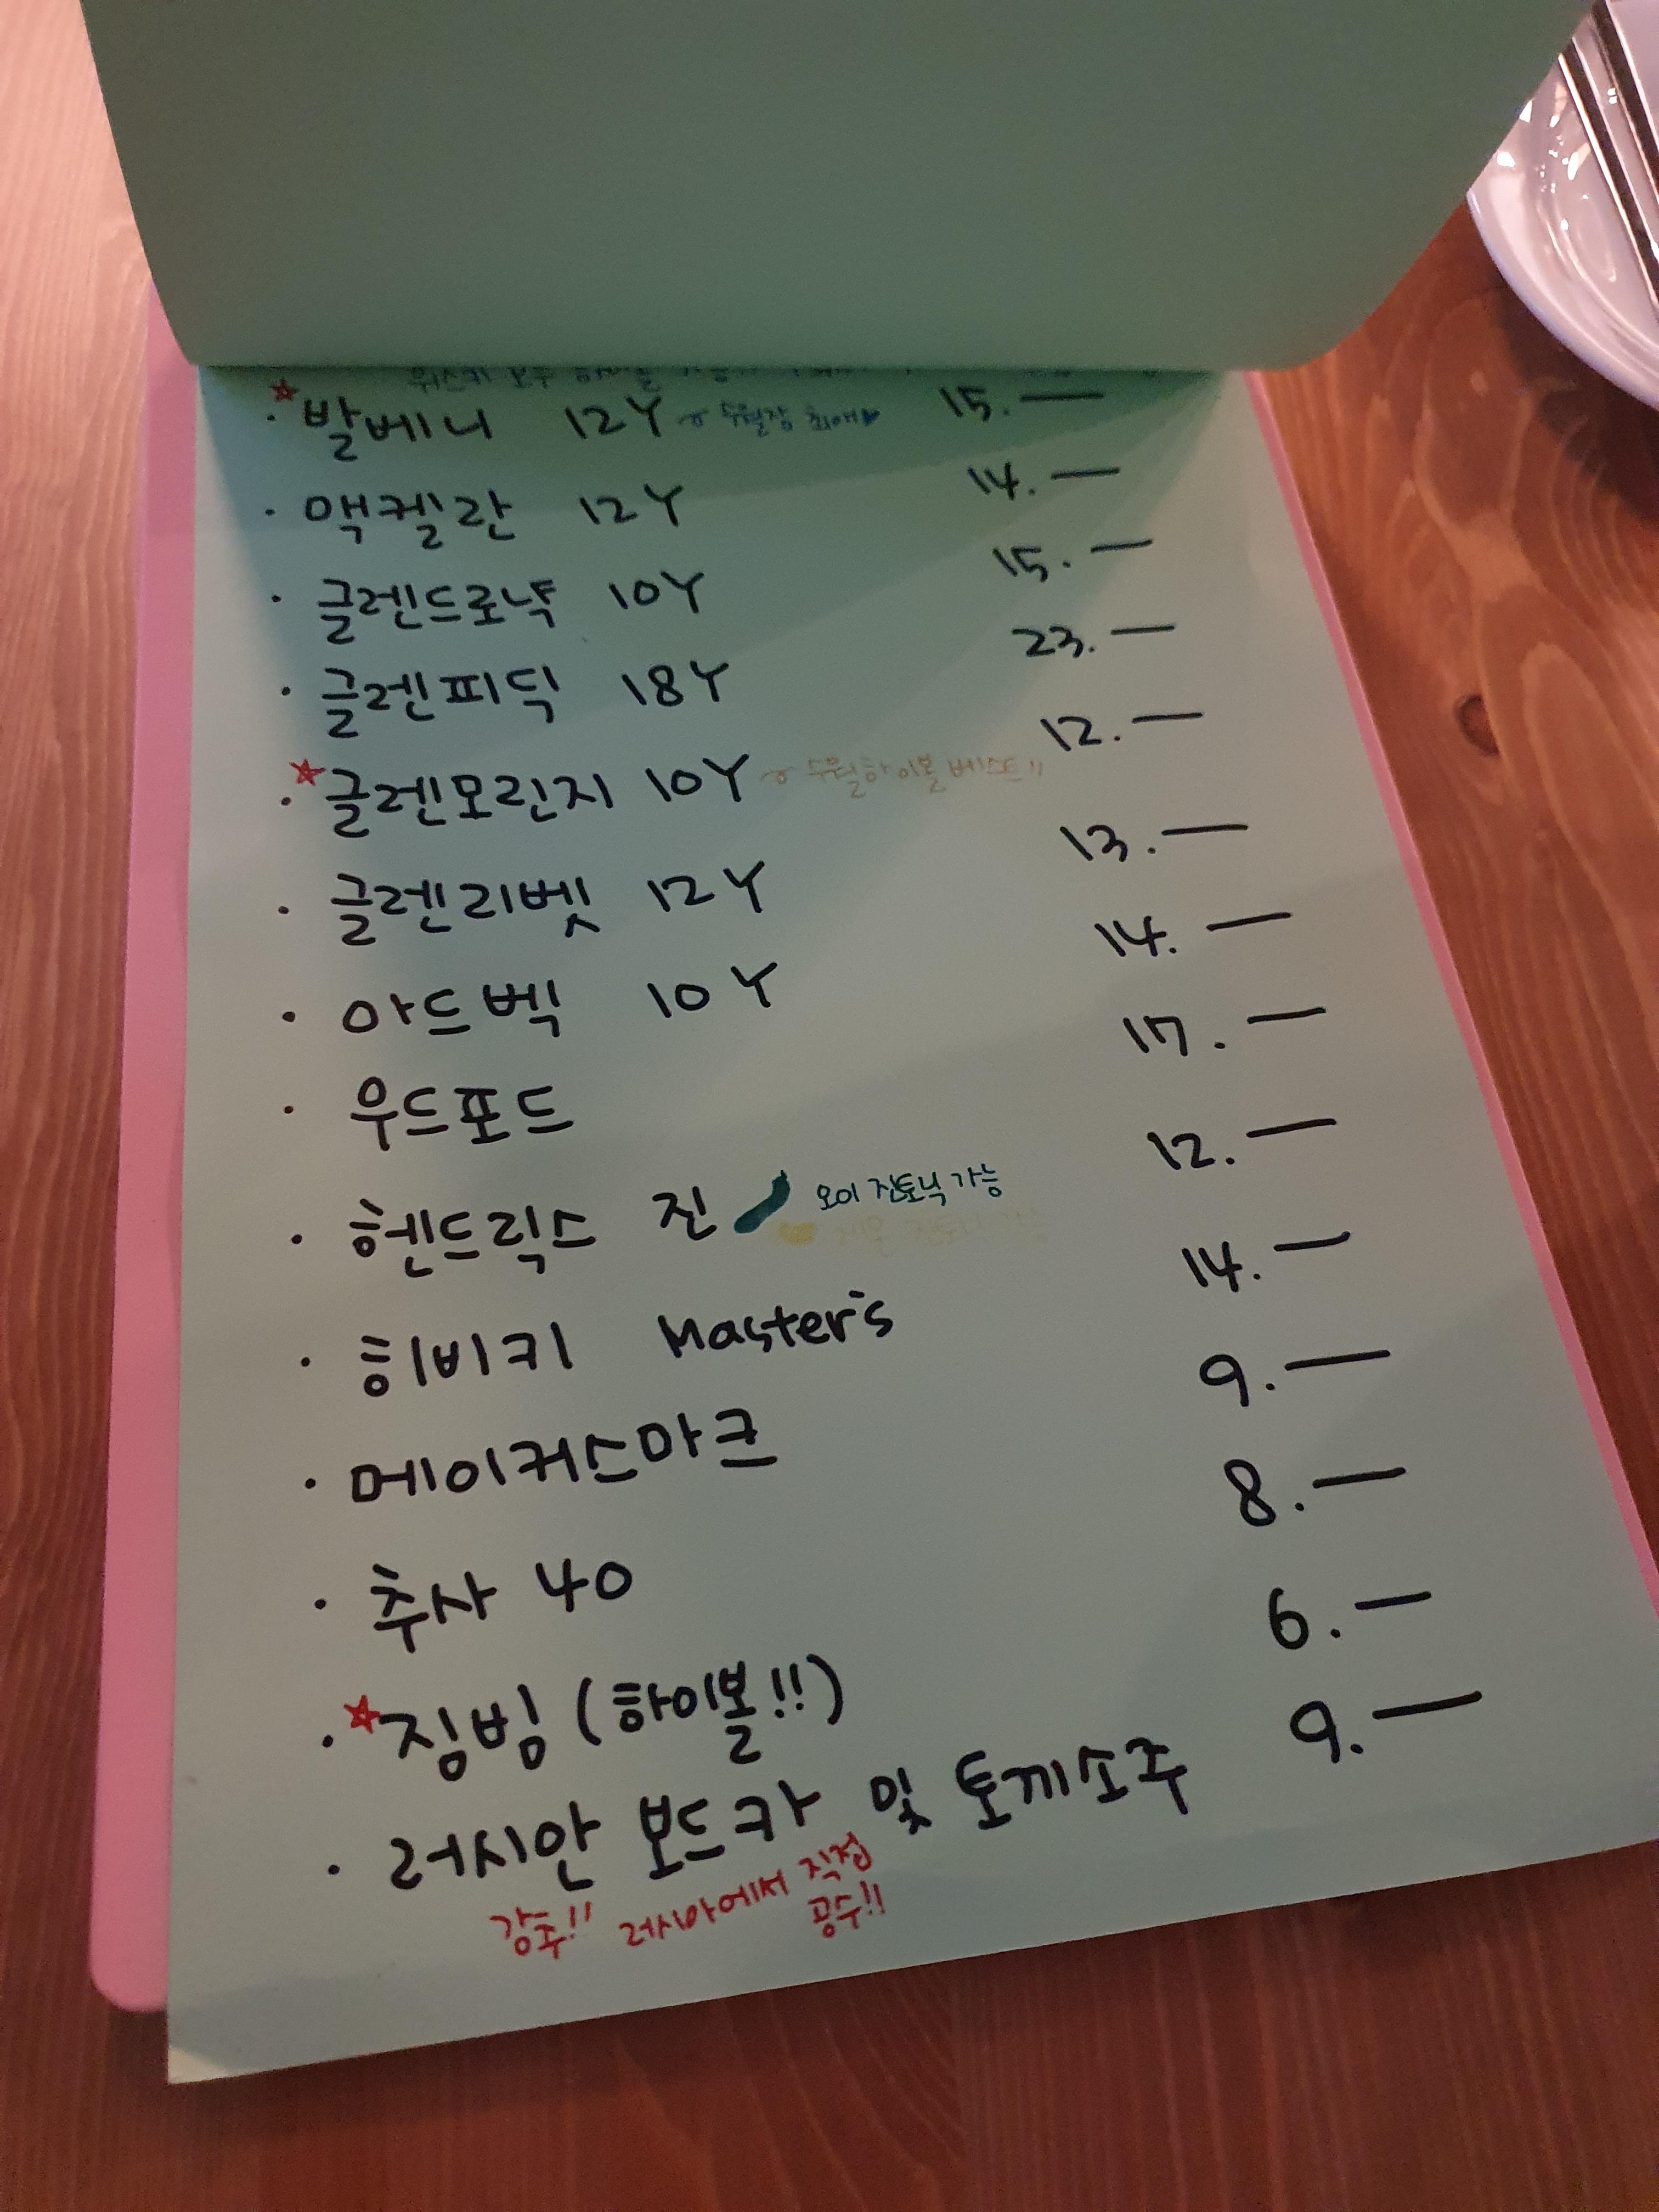 위스키 모두 하이볼 가능
* 발베니 12Y ~ 두월장 최애♥ 15.—
· 맥켈란 12Y 14.—
· 글렌드로낙 10Y 15.—
· 글렌피딕 18Y 23.—
* 글렌모린지 10Y ~ 두월하이볼 베스트!! 12.—
· 글렌리벳 12Y 13.—
· 아드벡 10Y 14.—
· 우드포드 17.—
· 헨드릭스 진 오이 진토닉 가능 12.—
· 히비키 Master's 14.—
· 메이커스마크 9.—
· 추사 40 8.—
· * 짐빔 (하이볼!!) 6.—
· 러시안 보드카 및 토끼소주 9.—
강추!! 러시아에서 직접
공수!!